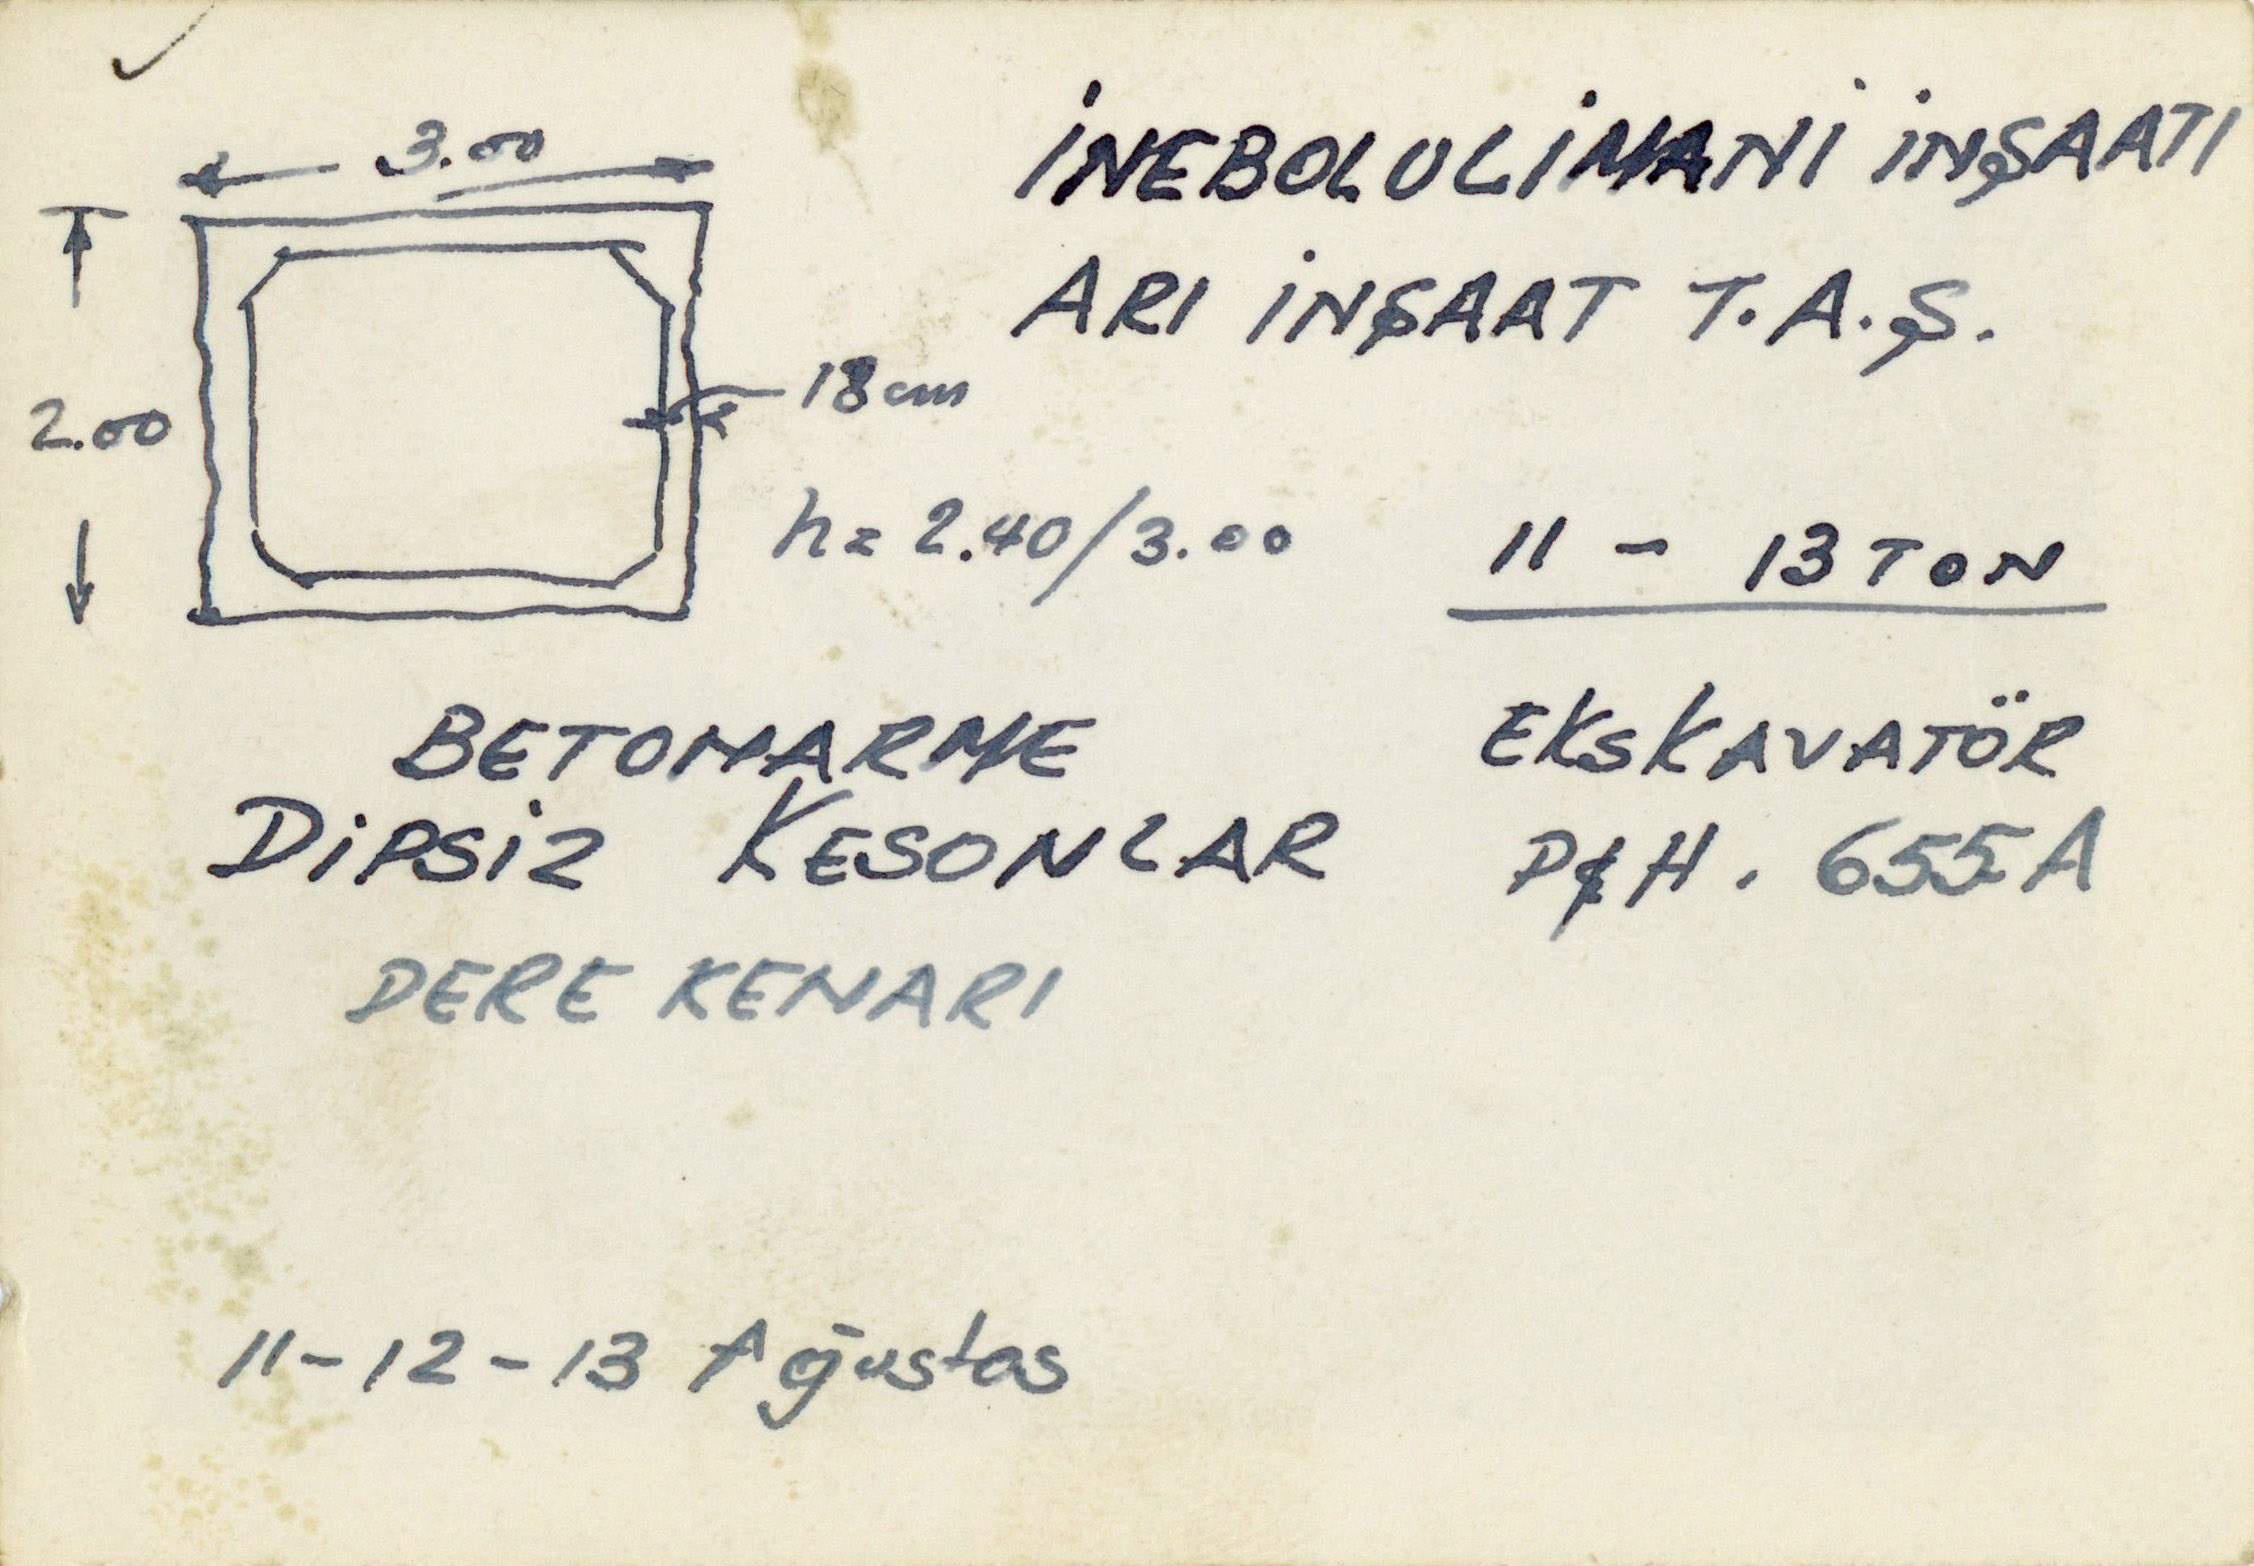 İNEBOLU LİMANİ İNŞAATI
ARI İNŞAAT T.A.Ş.
3.00
2.00
18 cm
h = 2.40/3.00
11 - 13 TON
BETONARME
DİPSİZ KESONLAR
DERE KENARI
EKSKAVATÖR
P&H. 655A
11-12-13 Ağustos